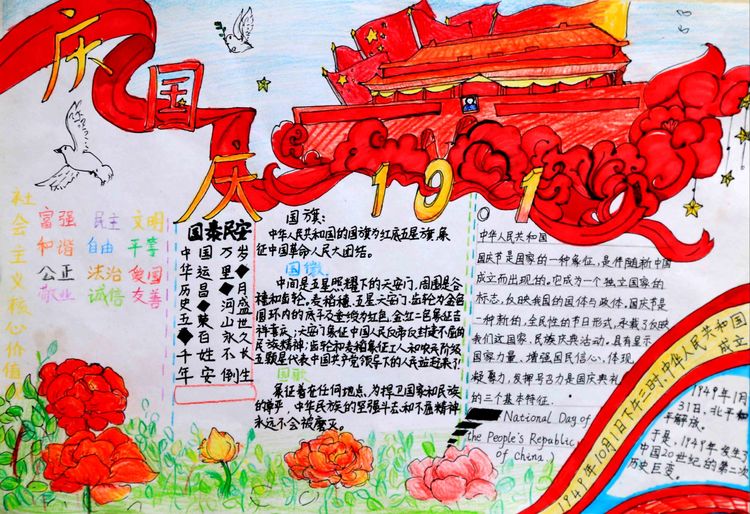 庆
国
庆
191
社会主义核心价值
富强 民主 文明
和谐 自由 平等
公正 法治 爱国
敬业 诚信 友善
国泰民安
中国万岁
华运里◆
历昌◆月
史◆河盛
五 山世
◆百永久
千姓不长
年安倒生
国旗:
中华人民共和国的国旗为红底五星旗,象
征中国革命人民大团结。
国徽
中间是五星照耀下的天安门,周围是谷
穗和齿轮。麦稻穗、五星天安门、齿轮为金色
国环内的底子及垂绶为红色,金红二色象征吉
祥喜庆;天安门象征中国人民反帝反封建不屈的
民族精神;齿轮和麦稻象征工人和农民阶级
五颗星代表中国共产党领导下的人民
国歌
象征着在任何地点,为捍卫国家和民族
的尊严,中华民族的坚强斗志和不屈精神
永远不会被磨灭。
中华人民共和国
国庆节是国家的一种象征,是伴随新中国
成立而出现的。它成为一个独立国家的
标志,反映我国的国体与政体。国庆节是
一种新的,全民性的节日形式,承载了反映
我们这国家、民族庆典活动,具有显示
国家力量,增强国民信心,体现
凝聚力,发挥号召力是国庆典礼
的三个基本特征.
(National Day of
the People's Republic
of China)
1949年10月1日下午三时,中华人民共和国
成立
1949年1月
31日,北平和
平解放。
于是,1949年发生了
中国20世纪的第二次
历史巨变。